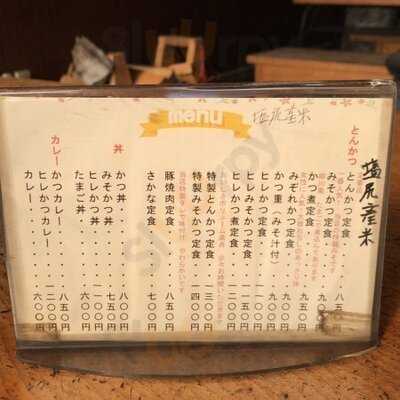 menu
塩尻産米
塩尻産米
とんかつ
とんかつ定食・・・八五〇円
みそかつ定食
かつ煮定食・・・九〇〇円
みぞれかつ定食・・・九五〇円
かつ重（みそ汁付）・・・九〇〇円
ヒレかつ定食・・・一〇〇〇円
ヒレかつ煮定食・・・一二〇〇円
ヒレみぞれ定食
特製とんかつ定食・・・一三〇〇円
特製みそかつ定食・・・一四〇〇円
豚焼肉定食・・・八五〇円
さかな定食・・・七〇〇円
丼
かつ丼・・・八〇〇円
みそかつ丼・・・七五〇円
ヒレかつ丼・・・一一〇〇円
たまご丼・・・六〇〇円
カレー
かつカレー・・・八五〇円
ヒレかつカレー・・・一二〇〇円
カレー・・・六〇〇円